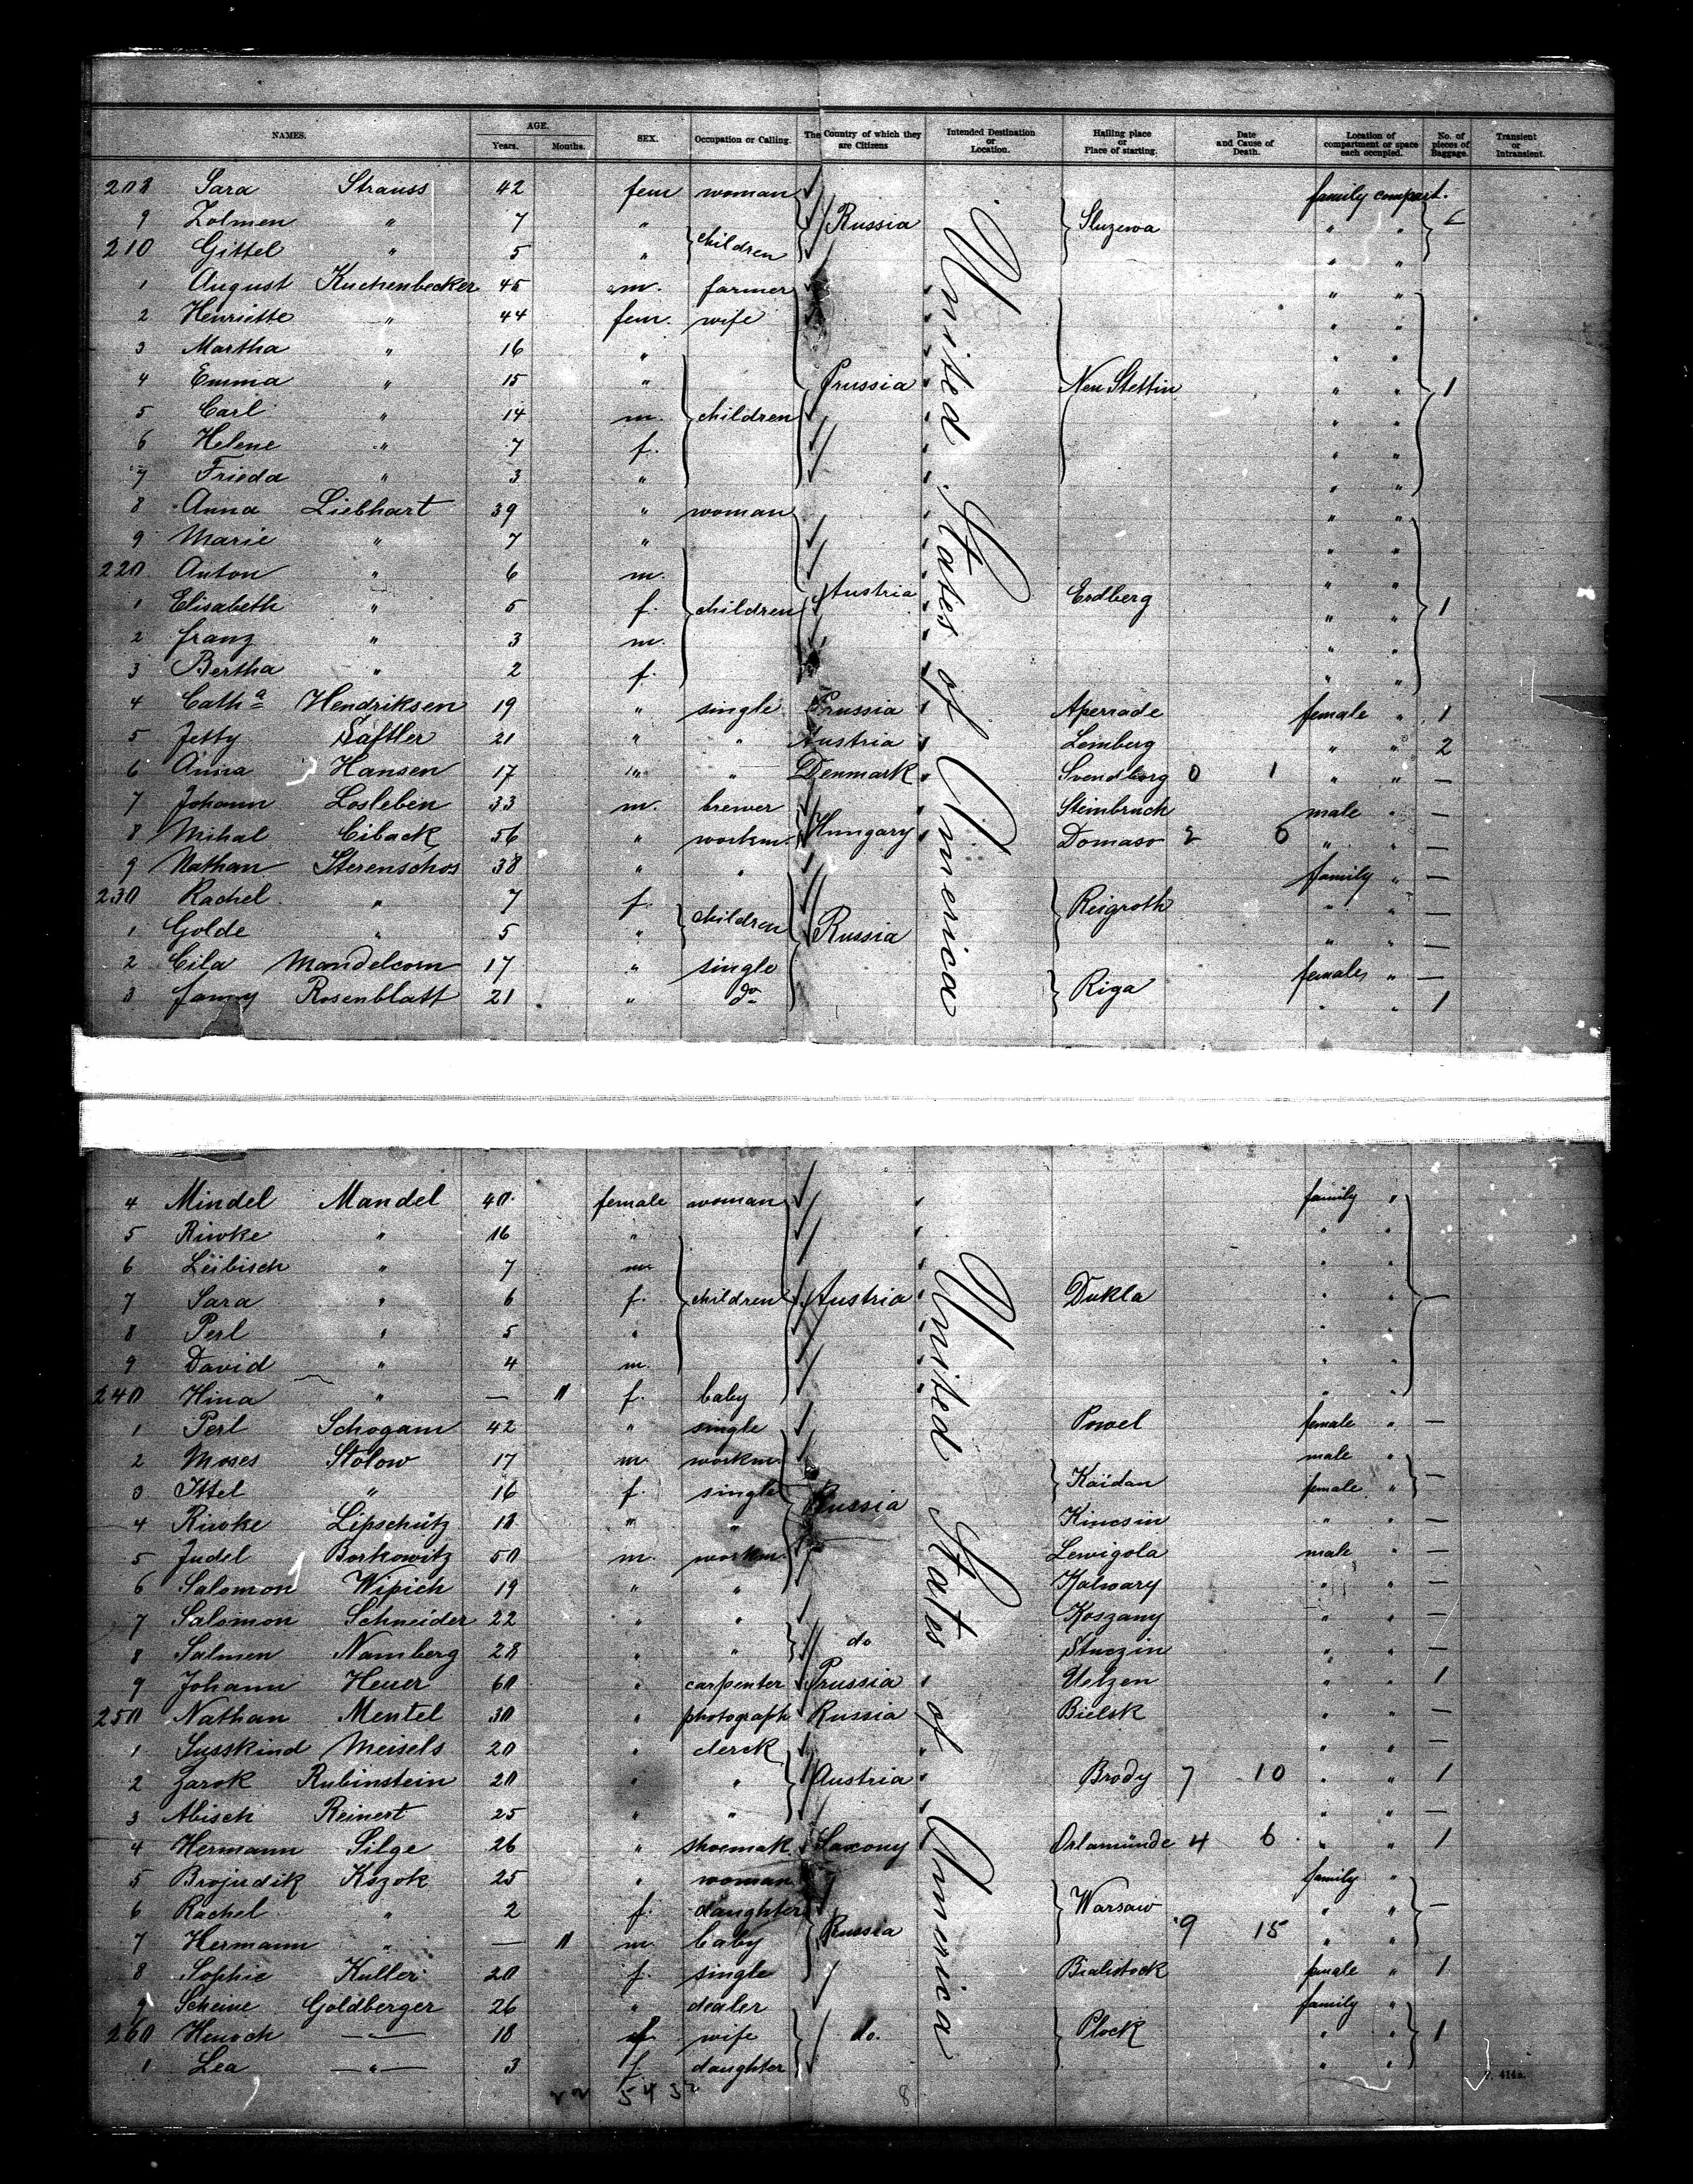 NAMES. AGE. Years. Months. SEX. Occupation or Calling The Country of which they are Citizens Intended Destination or Location. Hailing place or Place of starting. Date and Cause of Death. Location of compartment or space each occupied. No. of pieces of Baggage. Transient or Intransient.
208 Sara Strauss 42 fem woman family compart.
9 Zolmen " 7 " Russia Sluzewa " "
210 Gittel " 5 " children " "
1 August Kuchenbecker 45 m. farmer " "
2 Henriette " 44 fem. wife " "
3 Martha " 16 " " "
4 Emma " 15 " Prussia Neu Stettin " " 1
5 Carl " 14 m. children " "
6 Helene " 7 f. " "
7 Frieda " 3 " " "
8 Anna Liebhart 39 " woman " "
9 Marie " 7 " " "
220 Anton " 6 m. " "
1 Elisabeth " 5 f. children Austria Erdberg " " 1
2 Franz " 3 m. " "
3 Bertha " 2 f. " "
4 Catha Hendriksen 19 " single Prussia Aperrade female " 1
5 Jetty Saftler 21 " " Austria Lemberg " " 2
6 Anna Hansen 17 " " Denmark Svendborg 0 1 " " —
7 Johann Losleben 33 m. brewer Steinbruch male " —
8 Mihal Ciback 56 " workm. Hungary Domaso 2 0 " " —
9 Nathan Sterenschos 38 " " family " —
230 Rachel " 7 f. Reigroth " " —
1 Golde " 5 " children Russia " " —
2 Cila Mandelcorn 17 " single females " —
3 Fanny Rosenblatt 21 " do Riga " " 1
United States of America
4 Mindel Mandel 40 female woman family "
5 Riwke " 16 " " "
6 Leibisch " 7 m. " "
7 Sara " 6 f. children Austria Dukla " " —
8 Perl " 5 " " "
9 David " 4 m. " "
240 Hina " — 11 f. baby " "
1 Perl Schogam 42 " single Powel female " —
2 Moses Stolow 17 m workm. male "
3 Ittel " 16 f. single Russia Kaidan female " —
4 Riwke Lipschütz 18 " " Kincsin " " —
5 Judel Borkowitz 50 m. workm. Lewigola male " —
6 Salomon Wipich 19 " " Kalwary " " —
7 Salomon Schneider 22 " " Koszany " " —
8 Salmen Namberg 28 " " do Stuczin " " —
9 Johann Heuer 60 " carpenter Prussia Uelzen " " 1
250 Nathan Mentel 30 " photograph Russia Bielsk " " —
1 Susskind Meisels 20 " clerck " " —
2 Zarok Rubinstein 20 " " Austria Brody 7 10 " " 1
3 Abisch Reinert 25 " " " " —
4 Hermann Silge 26 " shoemak. Saxony Orlamünde 4 6 " " 1
5 Brojudik Kozok 25 " woman family "
6 Rachel " 2 f. daughter Warsaw " " —
7 Hermann " — 11 m. baby Russia 9 15 " "
8 Sophie Kuller 20 f. single Bialistock female " 1
9 Scheine Goldberger 26 " dealer family "
260 Henoch —"— 18 f. wife do. Plock " " 1
1 Lea —"— 3 f. daughter " "
United States of America
414a.